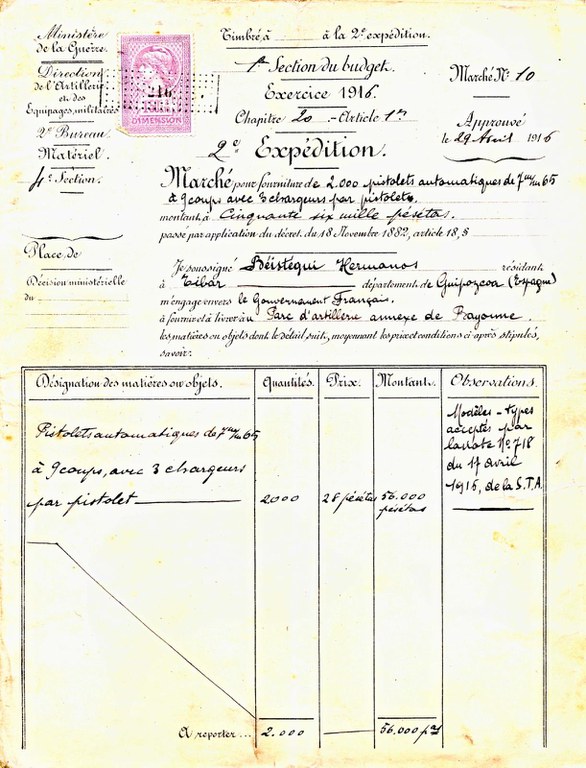 Ministère
de la Guerre.
Direction
de l'Artillerie
et des
Equipages militaires
2e Bureau.
Matériel.
4e Section.
Place de
Décision ministérielle
du
216
DIMENSION
Timbré à à la 2e expédition.
1re Section du budget.
Exercice 1916.
Chapitre 20 - Article 1er
2e Expédition.
Marché No 10
Approuvé
le 29 Avril 1916
Marché pour fourniture de 2.000 pistolets automatiques de 7m/m65
à 9 coups avec 3 chargeurs par pistolet.
montant à Cinquante six mille pésétas.
passé par application du décret du 18 Novembre 1882, article 18, §
Je soussigné Béistegui Hermanos résidant
à Eibar département de Guipozcoa (Espagne)
m'engage envers le Gouvernement Français.
à fournir et à livrer au Parc d'artillerie annexe de Bayonne.
les matières ou objets dont le détail suit, moyennant les prix et conditions ci-après stipulés,
savoir:
Désignation des matières ou objets. Quantités. Prix. Montant. Observations.
Pistolets automatiques de 7m/m65
à 9 coups, avec 3 chargeurs
par pistolet 2000 28 pésétas 56.000
pésétas
Modèles-types
acceptés par
la note No 718
du 17 avril
1915, de la S.T.A.
A reporter... 2.000 56.000 ptas